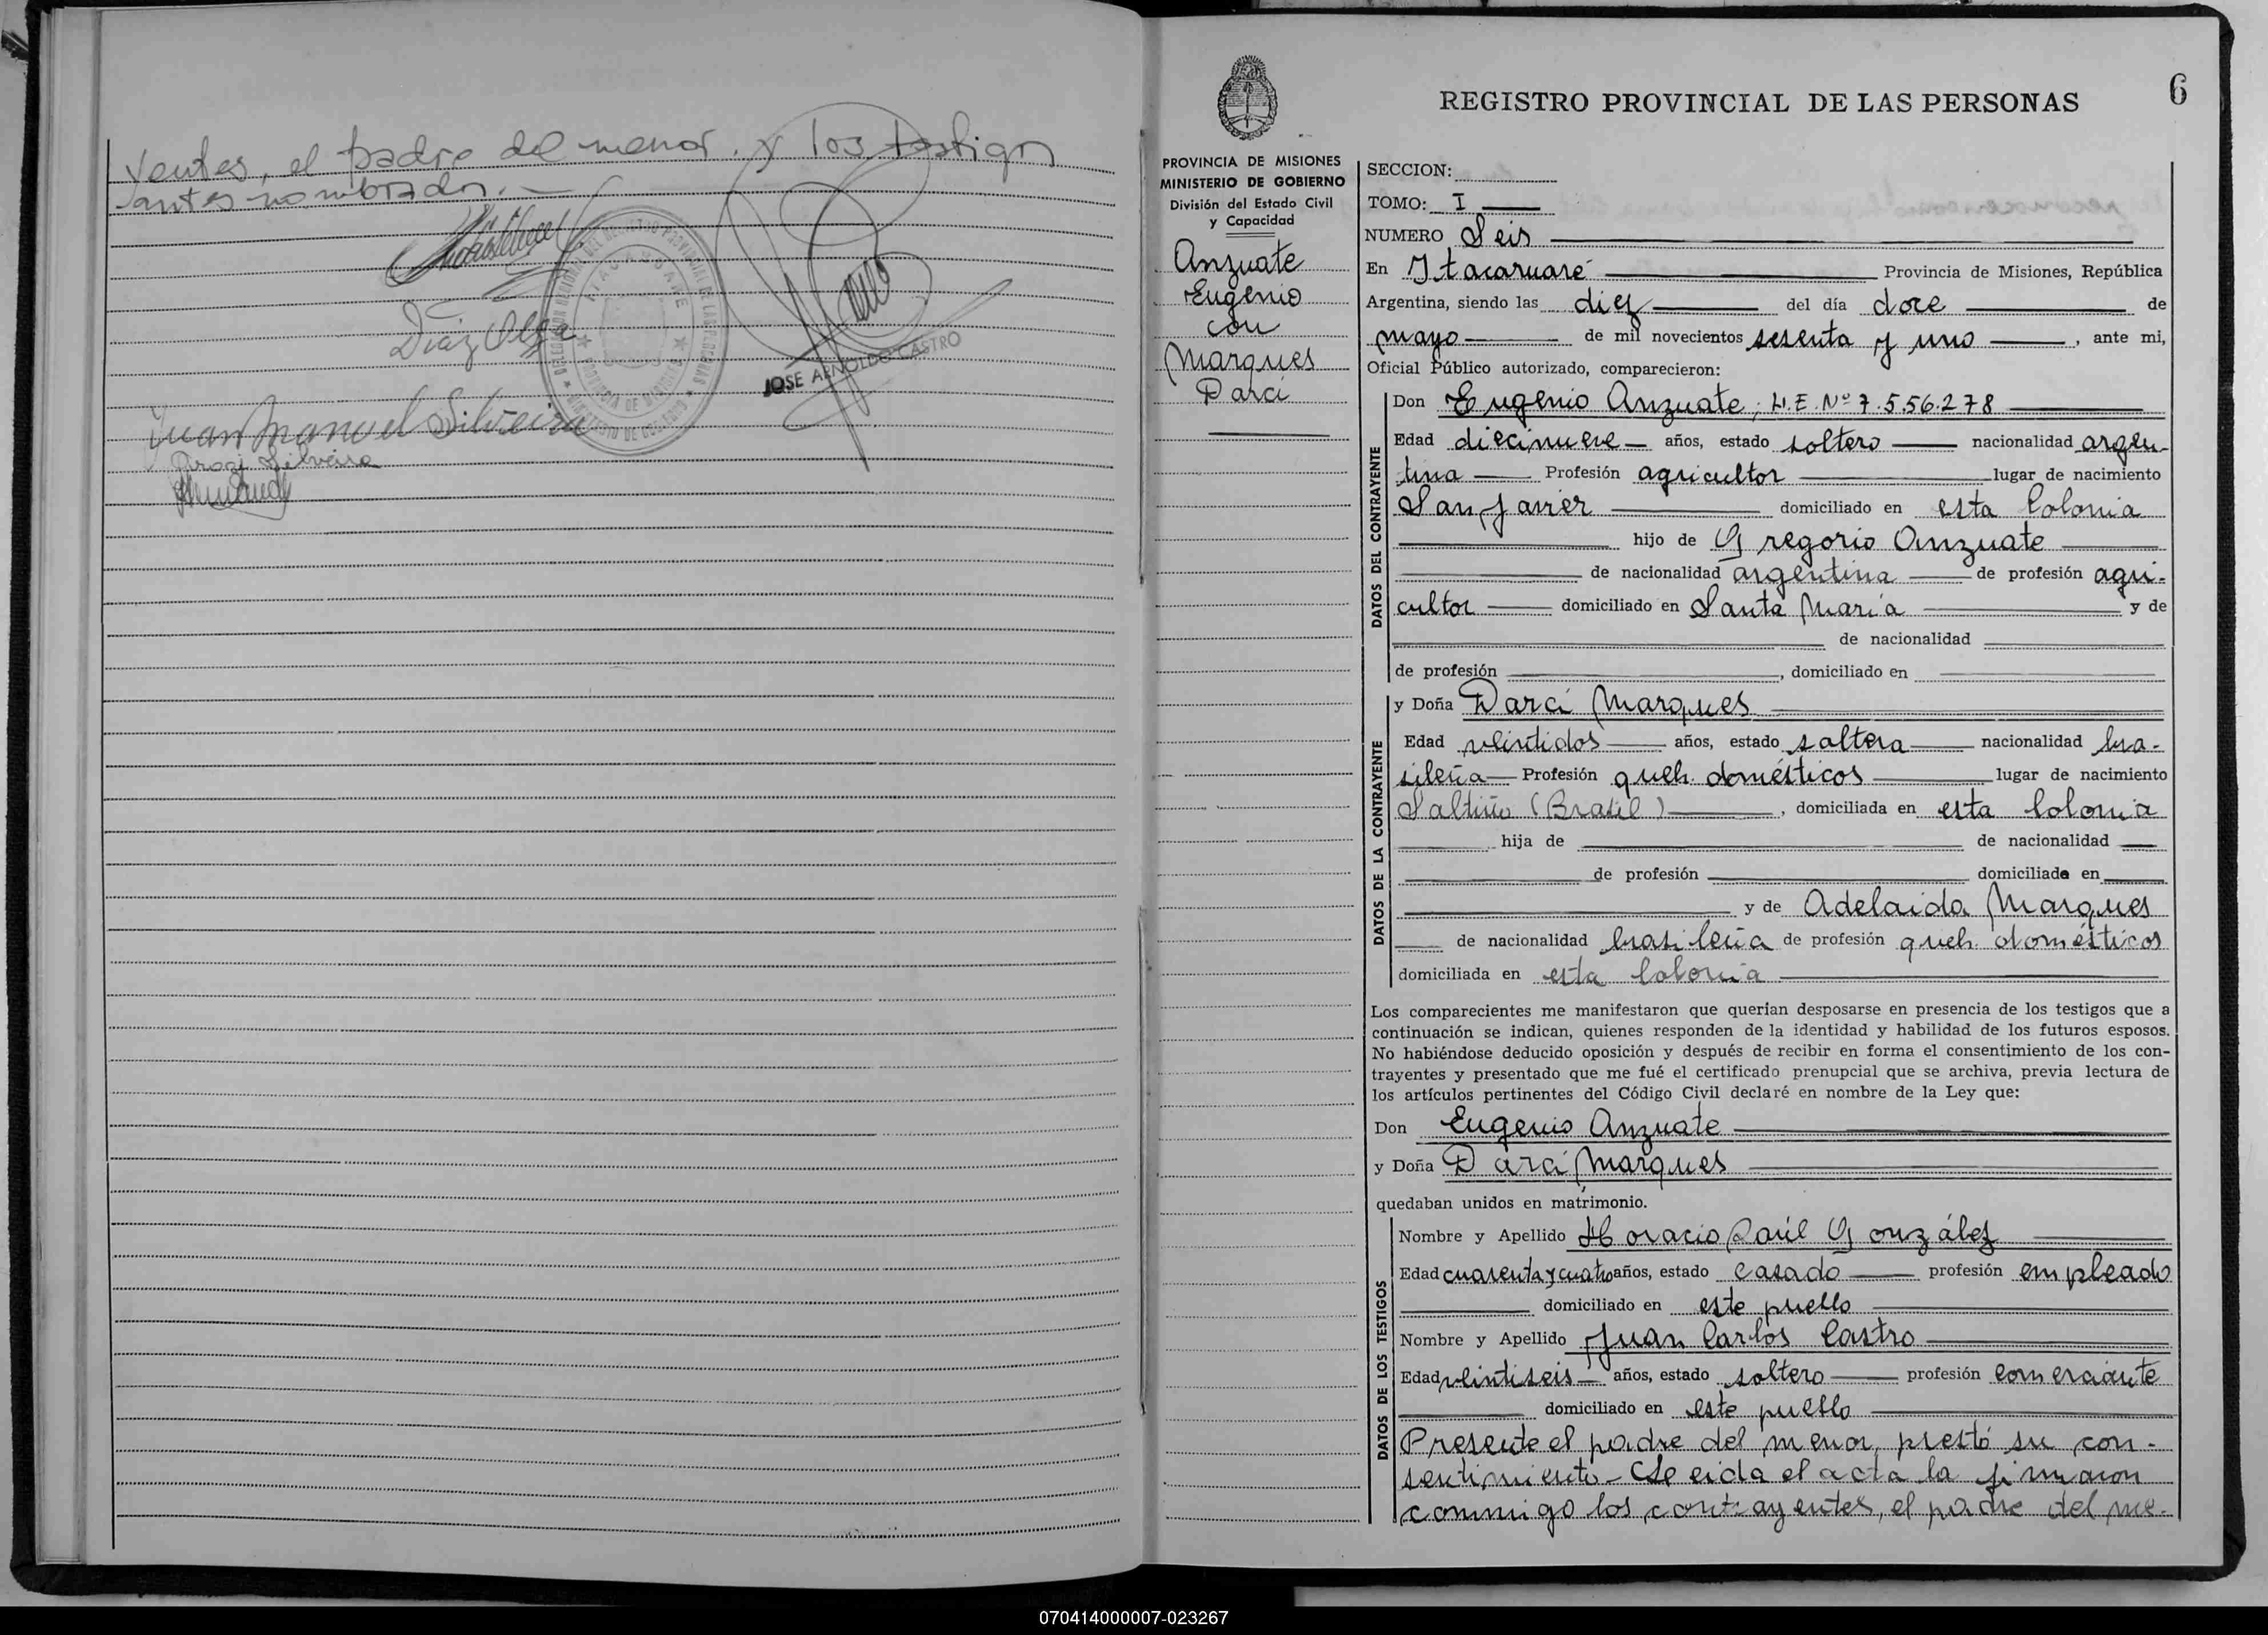 yentes, el padre del menor y los testigos
antes nombrados.—
Díaz Olga
JOSE ARNOLDO CASTRO
Juan Manuel Silveira
Silveira
6
REGISTRO PROVINCIAL DE LAS PERSONAS
PROVINCIA DE MISIONES
MINISTERIO DE GOBIERNO
División del Estado Civil
y Capacidad
Anzuate
Eugenio
con
Marques
Darci
SECCION:
TOMO: I
NUMERO Seis
En Itacaruaré Provincia de Misiones, República
Argentina, siendo las diez del día doce de
mayo de mil novecientos sesenta y uno, ante mi,
Oficial Público autorizado, comparecieron:
DATOS DEL CONTRAYENTE
Don Eugenio Anzuate, L.E. Nº 7.556.278
Edad diecinueve años, estado soltero nacionalidad argen-
tina Profesión agricultor lugar de nacimiento
San Javier domiciliado en esta Colonia
hijo de Gregorio Anzuate
de nacionalidad argentina de profesión agri-
cultor domiciliado en Santa María y de
de nacionalidad
de profesión , domiciliado en
DATOS DE LA CONTRAYENTE
y Doña Darci Marques
Edad veintidos años, estado soltera nacionalidad bra-
sileña Profesión queh. domésticos lugar de nacimiento
Saltiño (Brasil) , domiciliada en esta Colonia
hija de de nacionalidad
de profesión domiciliada en
y de Adelaida Marques
de nacionalidad brasileña de profesión queh. domésticos
domiciliada en esta Colonia
Los comparecientes me manifestaron que querían desposarse en presencia de los testigos que a
continuación se indican, quienes responden de la identidad y habilidad de los futuros esposos.
No habiéndose deducido oposición y después de recibir en forma el consentimiento de los con-
trayentes y presentado que me fué el certificado prenupcial que se archiva, previa lectura de
los artículos pertinentes del Código Civil declaré en nombre de la Ley que:
Don Eugenio Anzuate
y Doña Darci Marques
quedaban unidos en matrimonio.
DATOS DE LOS TESTIGOS
Nombre y Apellido Horacio Raúl González
Edad cuarenta y cuatro años, estado casado profesión empleado
domiciliado en este pueblo
Nombre y Apellido Juan Carlos Castro
Edad veintiseis años, estado soltero profesión comerciante
domiciliado en este pueblo
Presente el padre del menor, prestó su con-
sentimiento - Leida el acta la firmaron
conmigo los contrayentes, el padre del me-
070414000007-023267